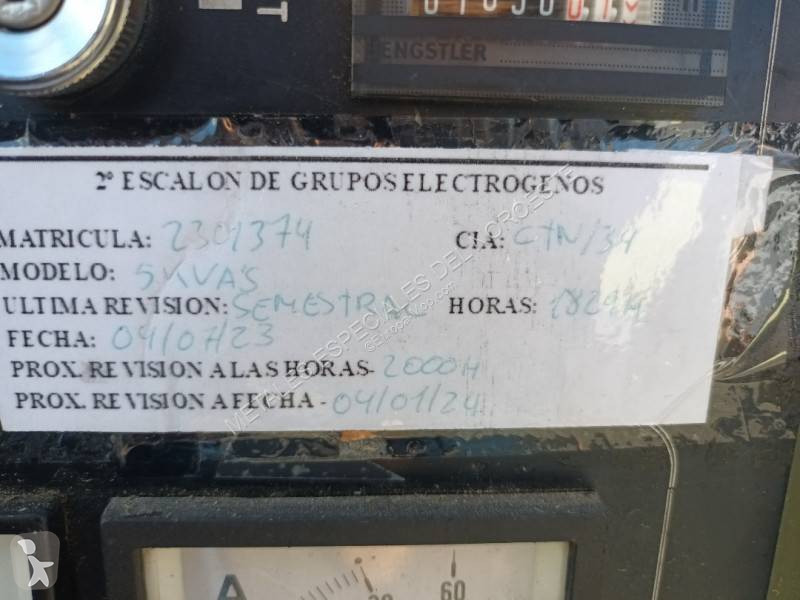 T
HENGSTLER
2º ESCALON DE GRUPOS ELECTROGENOS
MATRICULA: 2301374 CIA: CTN/34
MODELO: 5 KVAS
ULTIMA REVISION: SEMESTRAL HORAS:
FECHA: 04/07/23
PROX. REVISION A LAS HORAS- 2000H
PROX. REVISION A FECHA - 04/01/24
METALES ESPECIALES DEL NOROESTE
A
60